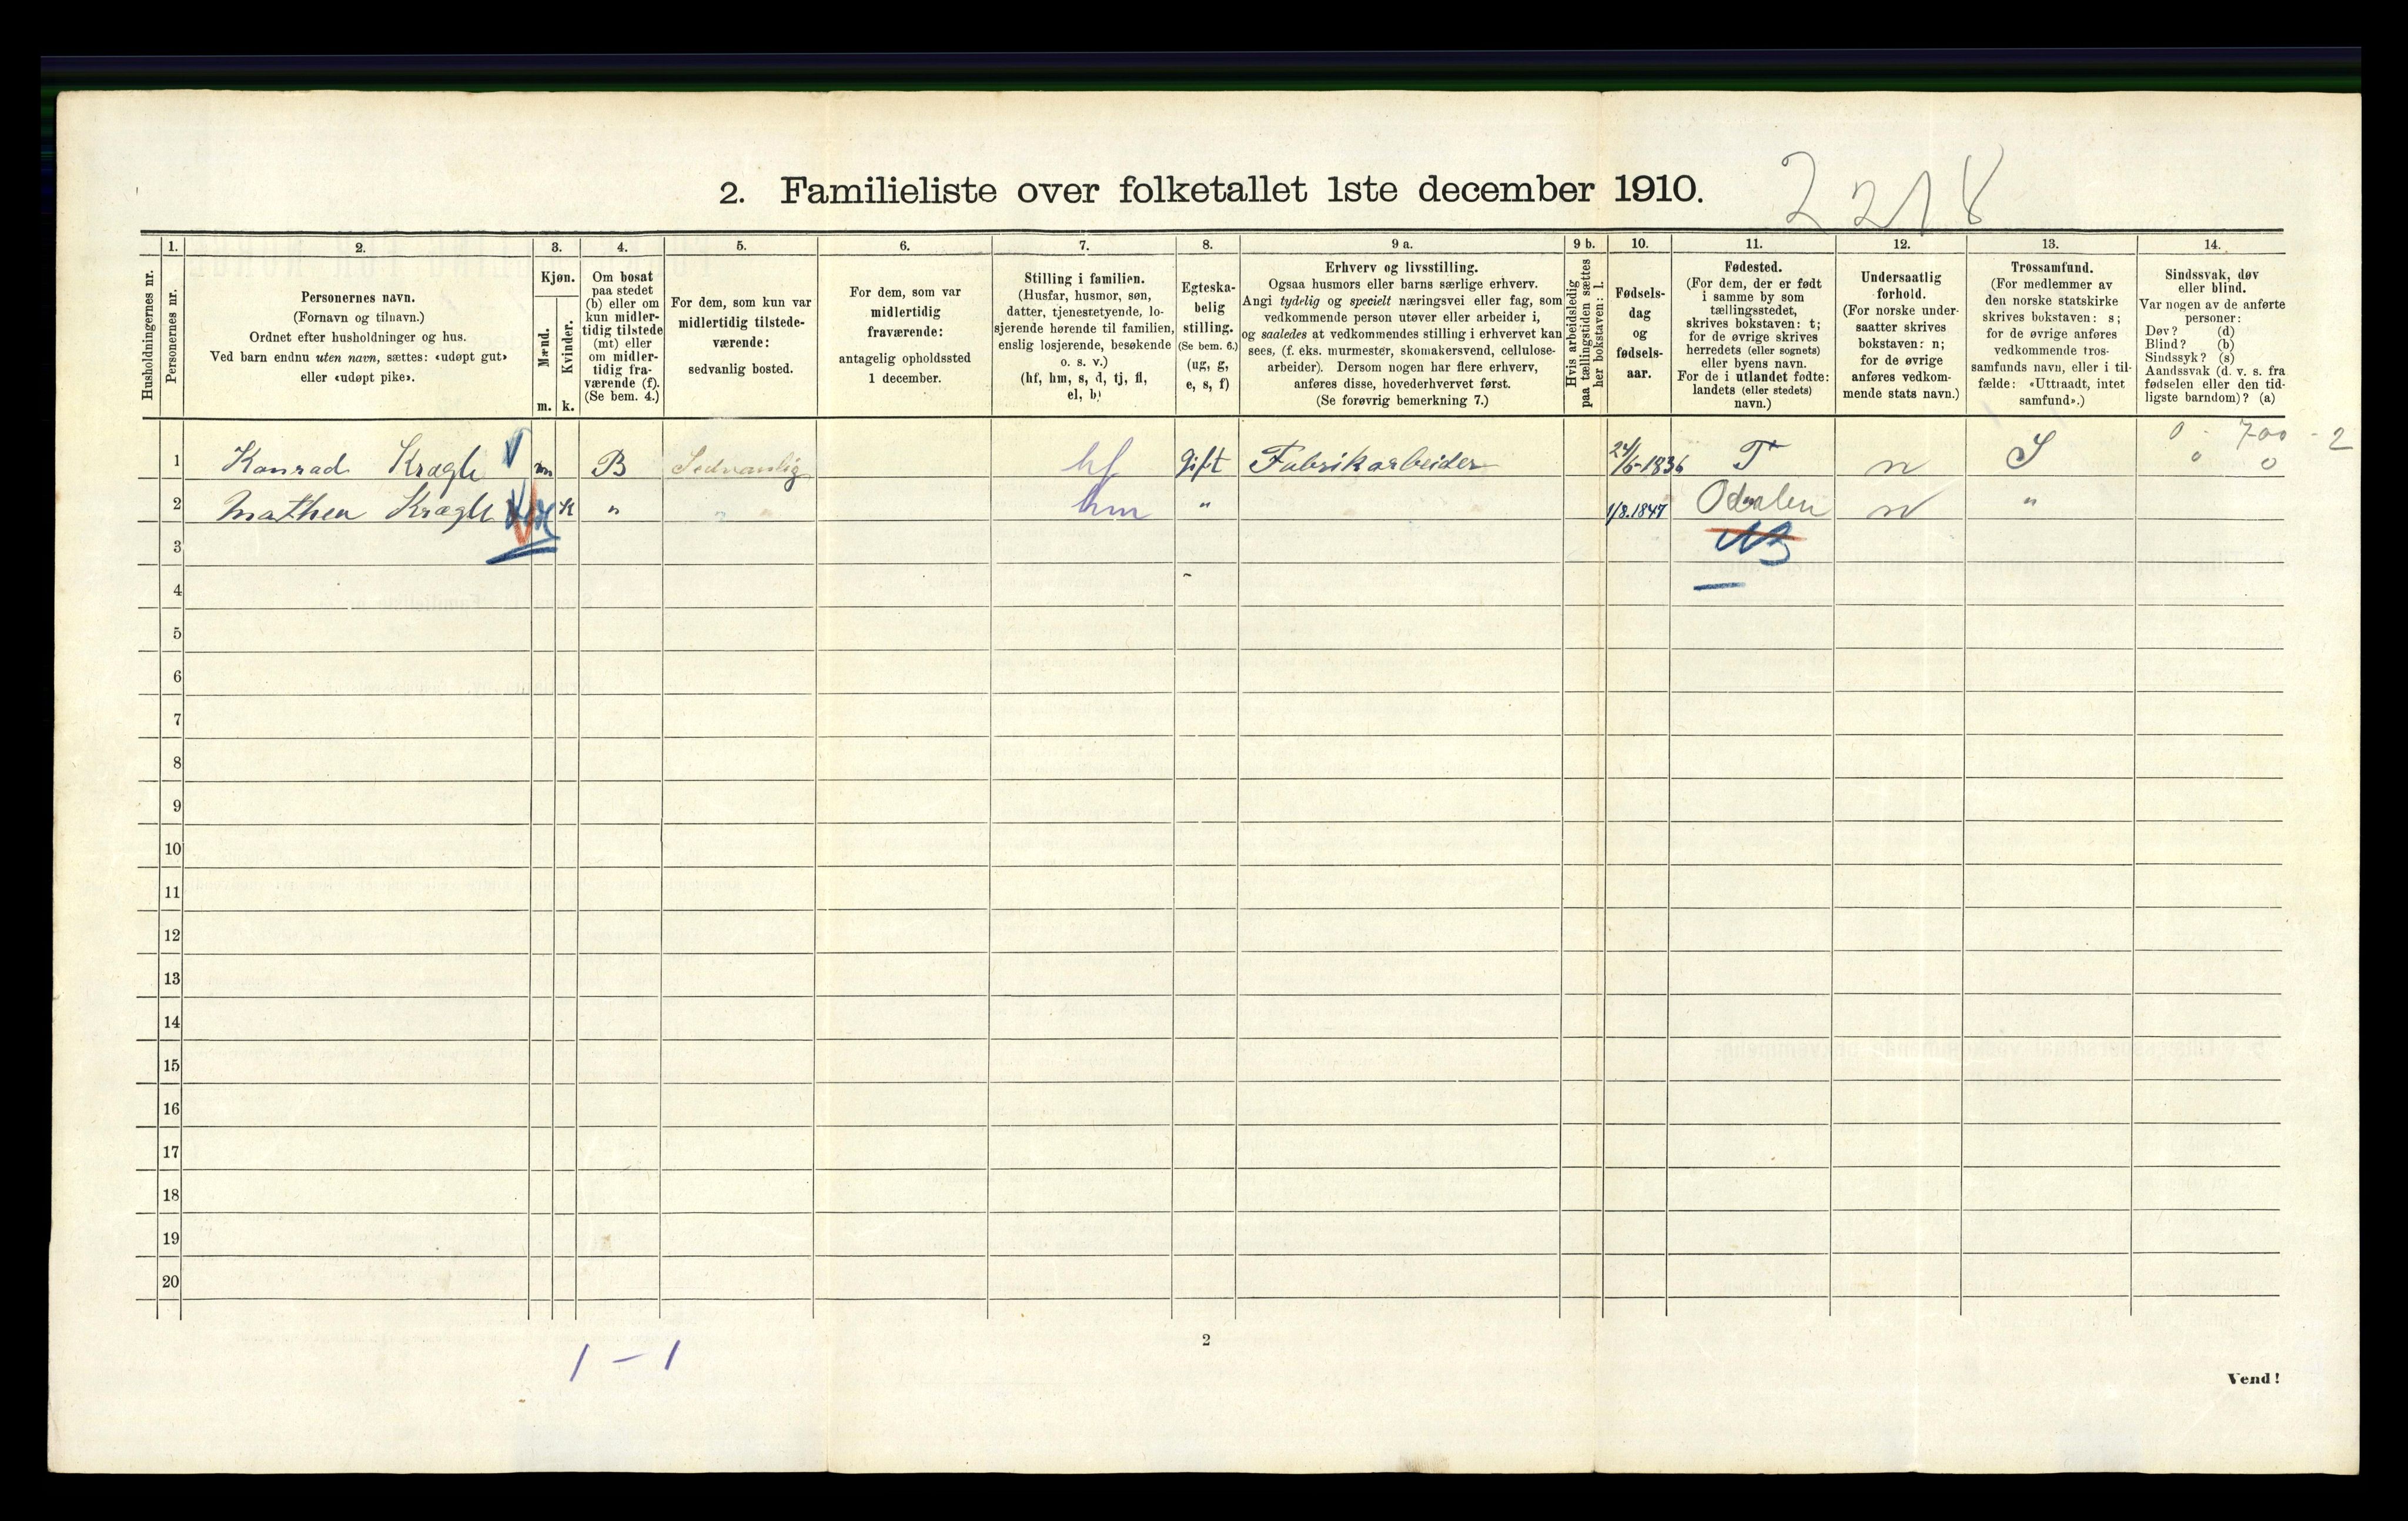 2. Familieliste over folketallet 1ste december 1910.
2218
Husholdningernes nr.
1.
Personernes nr.
2.
Personernes navn.
(Fornavn og tilnavn.)
Ordnet efter husholdninger og hus.
Ved barn endnu uten navn, sættes: «udøpt gut»
eller «udøpt pike».
3.
Kjøn.
Mænd.
Kvinder.
m. k.
4.
Om bosat
paa stedet
(b) eller om
kun midler-
tidig tilstede
(mt) eller
om midler-
tidig fra-
værende (f).
(Se bem. 4.)
5.
For dem, som kun var
midlertidig tilstede-
værende:
sedvanlig bosted.
6.
For dem, som var
midlertidig
fraværende:
antagelig opholdssted
1 december.
7.
Stilling i familien.
(Husfar, husmor, søn,
datter, tjenestetyende, lo-
sjerende hørende til familien,
enslig losjerende, besøkende
o. s. v.)
(hf, hm, s, d, tj, fl,
el, b)
8.
Egteska-
belig
stilling.
(Se bem. 6.)
(ug, g,
e, s, f)
9 a.
Erhverv og livsstilling.
Ogsaa husmors eller barns særlige erhverv.
Angi tydelig og specielt næringsvei eller fag, som
vedkommende person utøver eller arbeider i,
og saaledes at vedkommendes stilling i erhvervet kan
sees, (f. eks. murmester, skomakersvend, cellulose-
arbeider). Dersom nogen har flere erhverv,
anføres disse, hovederhvervet først.
(Se forøvrig bemerkning 7.)
9 b.
Hvis arbeidsledig
paa tællingstiden sættes
her bokstaven: l.
10.
Fødsels-
dag
og
fødsels-
aar.
11.
Fødested.
(For dem, der er født
i samme by som
tællingsstedet,
skrives bokstaven: t;
for de øvrige skrives
herredets (eller sognets)
eller byens navn.
For de i utlandet fødte:
landets (eller stedets)
navn.)
12.
Undersaatlig
forhold.
(For norske under-
saatter skrives
bokstaven: n;
for de øvrige
anføres vedkom-
mende stats navn.)
13.
Trossamfund.
(For medlemmer av
den norske statskirke
skrives bokstaven: s;
for de øvrige anføres
vedkommende tros-
samfunds navn, eller i til-
fælde: «Uttraadt, intet
samfund».)
14.
Sindssvak, døv
eller blind.
Var nogen av de anførte
personer:
Døv? (d)
Blind? (b)
Sindssyk? (s)
Aandssvak (d. v. s. fra
fødselen eller den tid-
ligste barndom)? (a)
0 - 700 - 2
0 0
1 Konrad Kragh m B Sedvanlig hf gift Fabrikarbeider 24/6-1836 T n S
2 Mathea Kragh K " " hm " 1/8.1847 Odalen n "
NB
3
4
5
6
7
8
9
10
11
12
13
14
15
16
17
18
19
20
1 - 1
2
Vend!